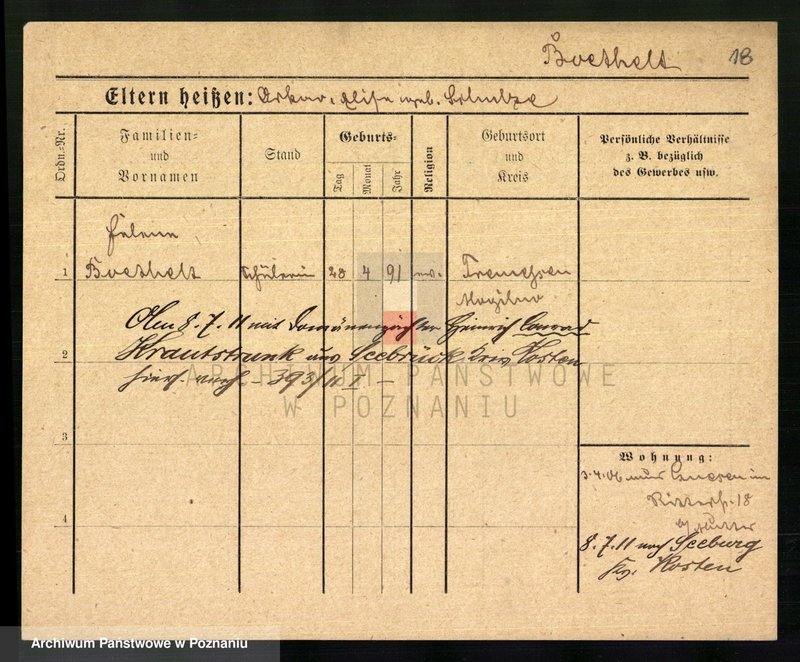 Boethelt 18
Eltern heißen: Oskar u. Elise geb. Schulze
Ordn.-Nr.
Familien- und Vornamen
Stand
Geburts-
Tag
Monat
Jahr
Religion
Geburtsort und Kreis
Persönliche Verhältnisse
z. B. bezüglich
des Gewerbes usw.
Helene
1 Boethelt Schülerin 28 4 91 ev. Tremessen
Mogilno
Am 8.7.11 mit Domänenpächter Heinrich Conrad
2 Krautstrunk aus Seebrück Krs Kosten
hier verh – 393/11 I –
ARCHIWUM PAŃSTWOWE
W POZNANIU
3
Wohnung:
3.4.06
Ritterstr. 18
4 b/ Mutter
8.7.11 nach Seeburg
Kr. Kosten
Archiwum Państwowe w Poznaniu